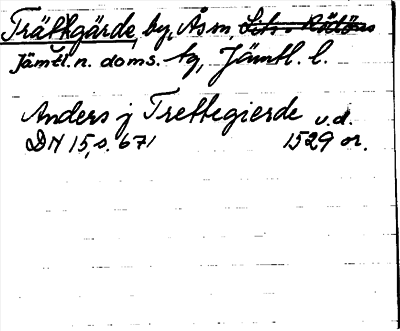 Trättgärde, by, Ås sn,
Jämtl. n. doms. tg, Jämtl. l.
Anders j Trettegierde u.d.
DN 15, s. 671 1529 or.